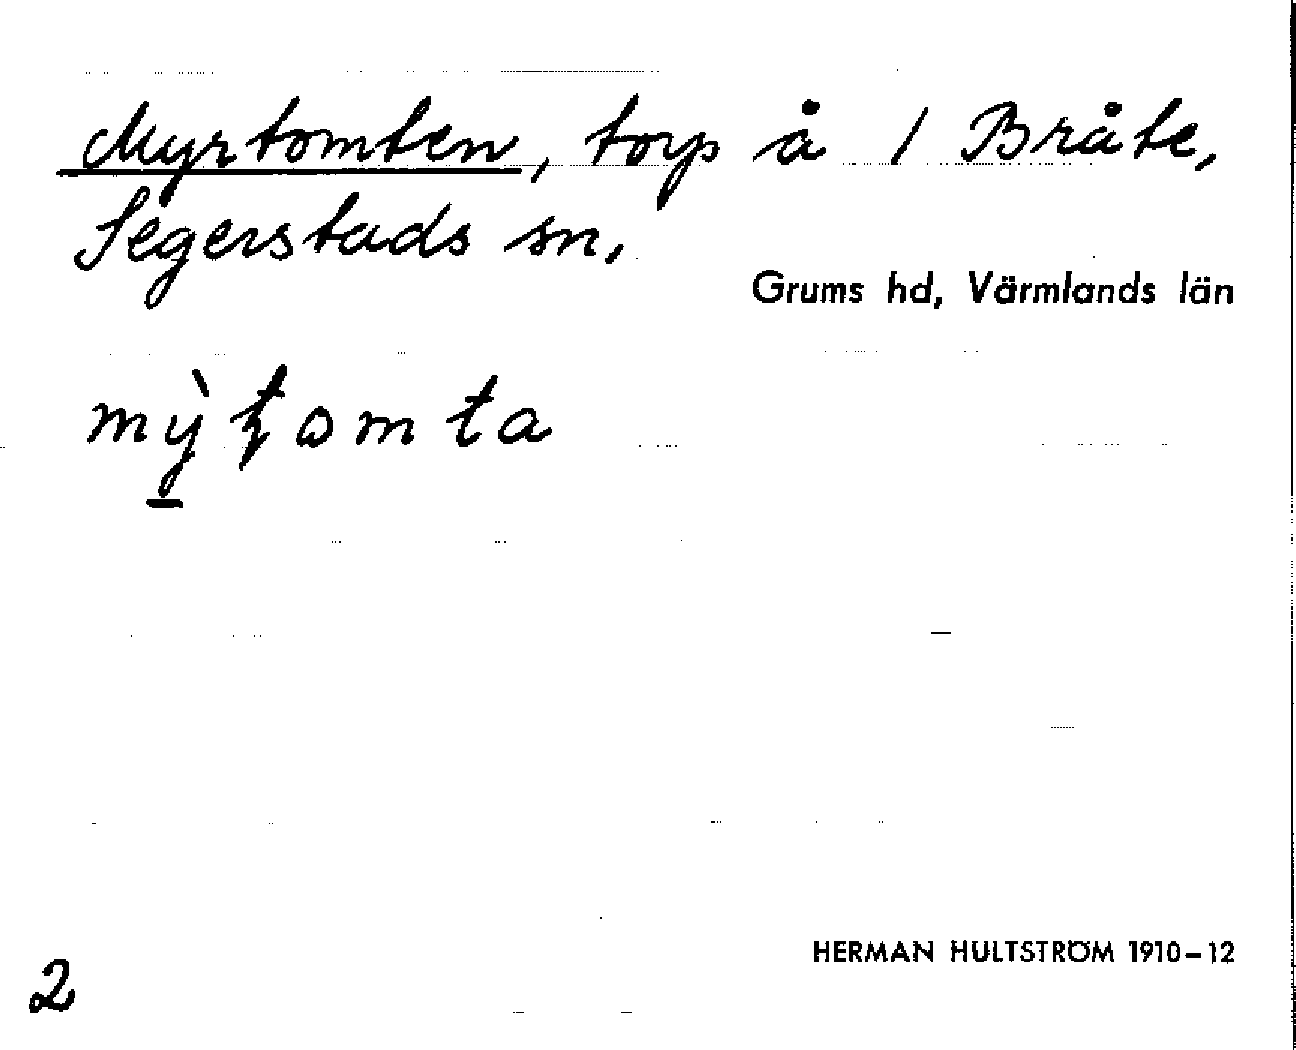 Myrtomten, torp å 1 Bråte,
Segerstads sn,
Grums hd, Värmlands län
mỳʈɷmta
2
HERMAN HULTSTRÖM 1910–12